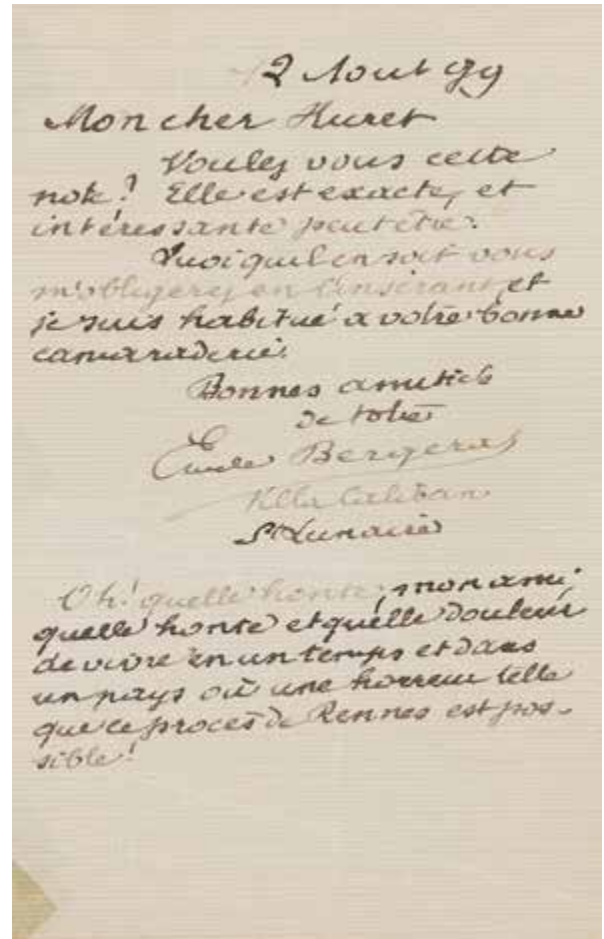 2 Aout 99
Mon cher Huret
Voulez vous cette
note? Elle est exacte, et
intéressante peut être.
Quoiqu'il en soit vous
m'obligerez en l'insérant, et
je suis habitué à votre bonne
camaraderie.
Bonnes amitiés
de votre
Emile Bergerat
Villa Caliban
St Lunaire
Oh! quelle honte, mon ami,
quelle honte et quelle douleur
de vivre en un temps et dans
un pays où une horreur telle
que ce procès de Rennes est pos-
sible!